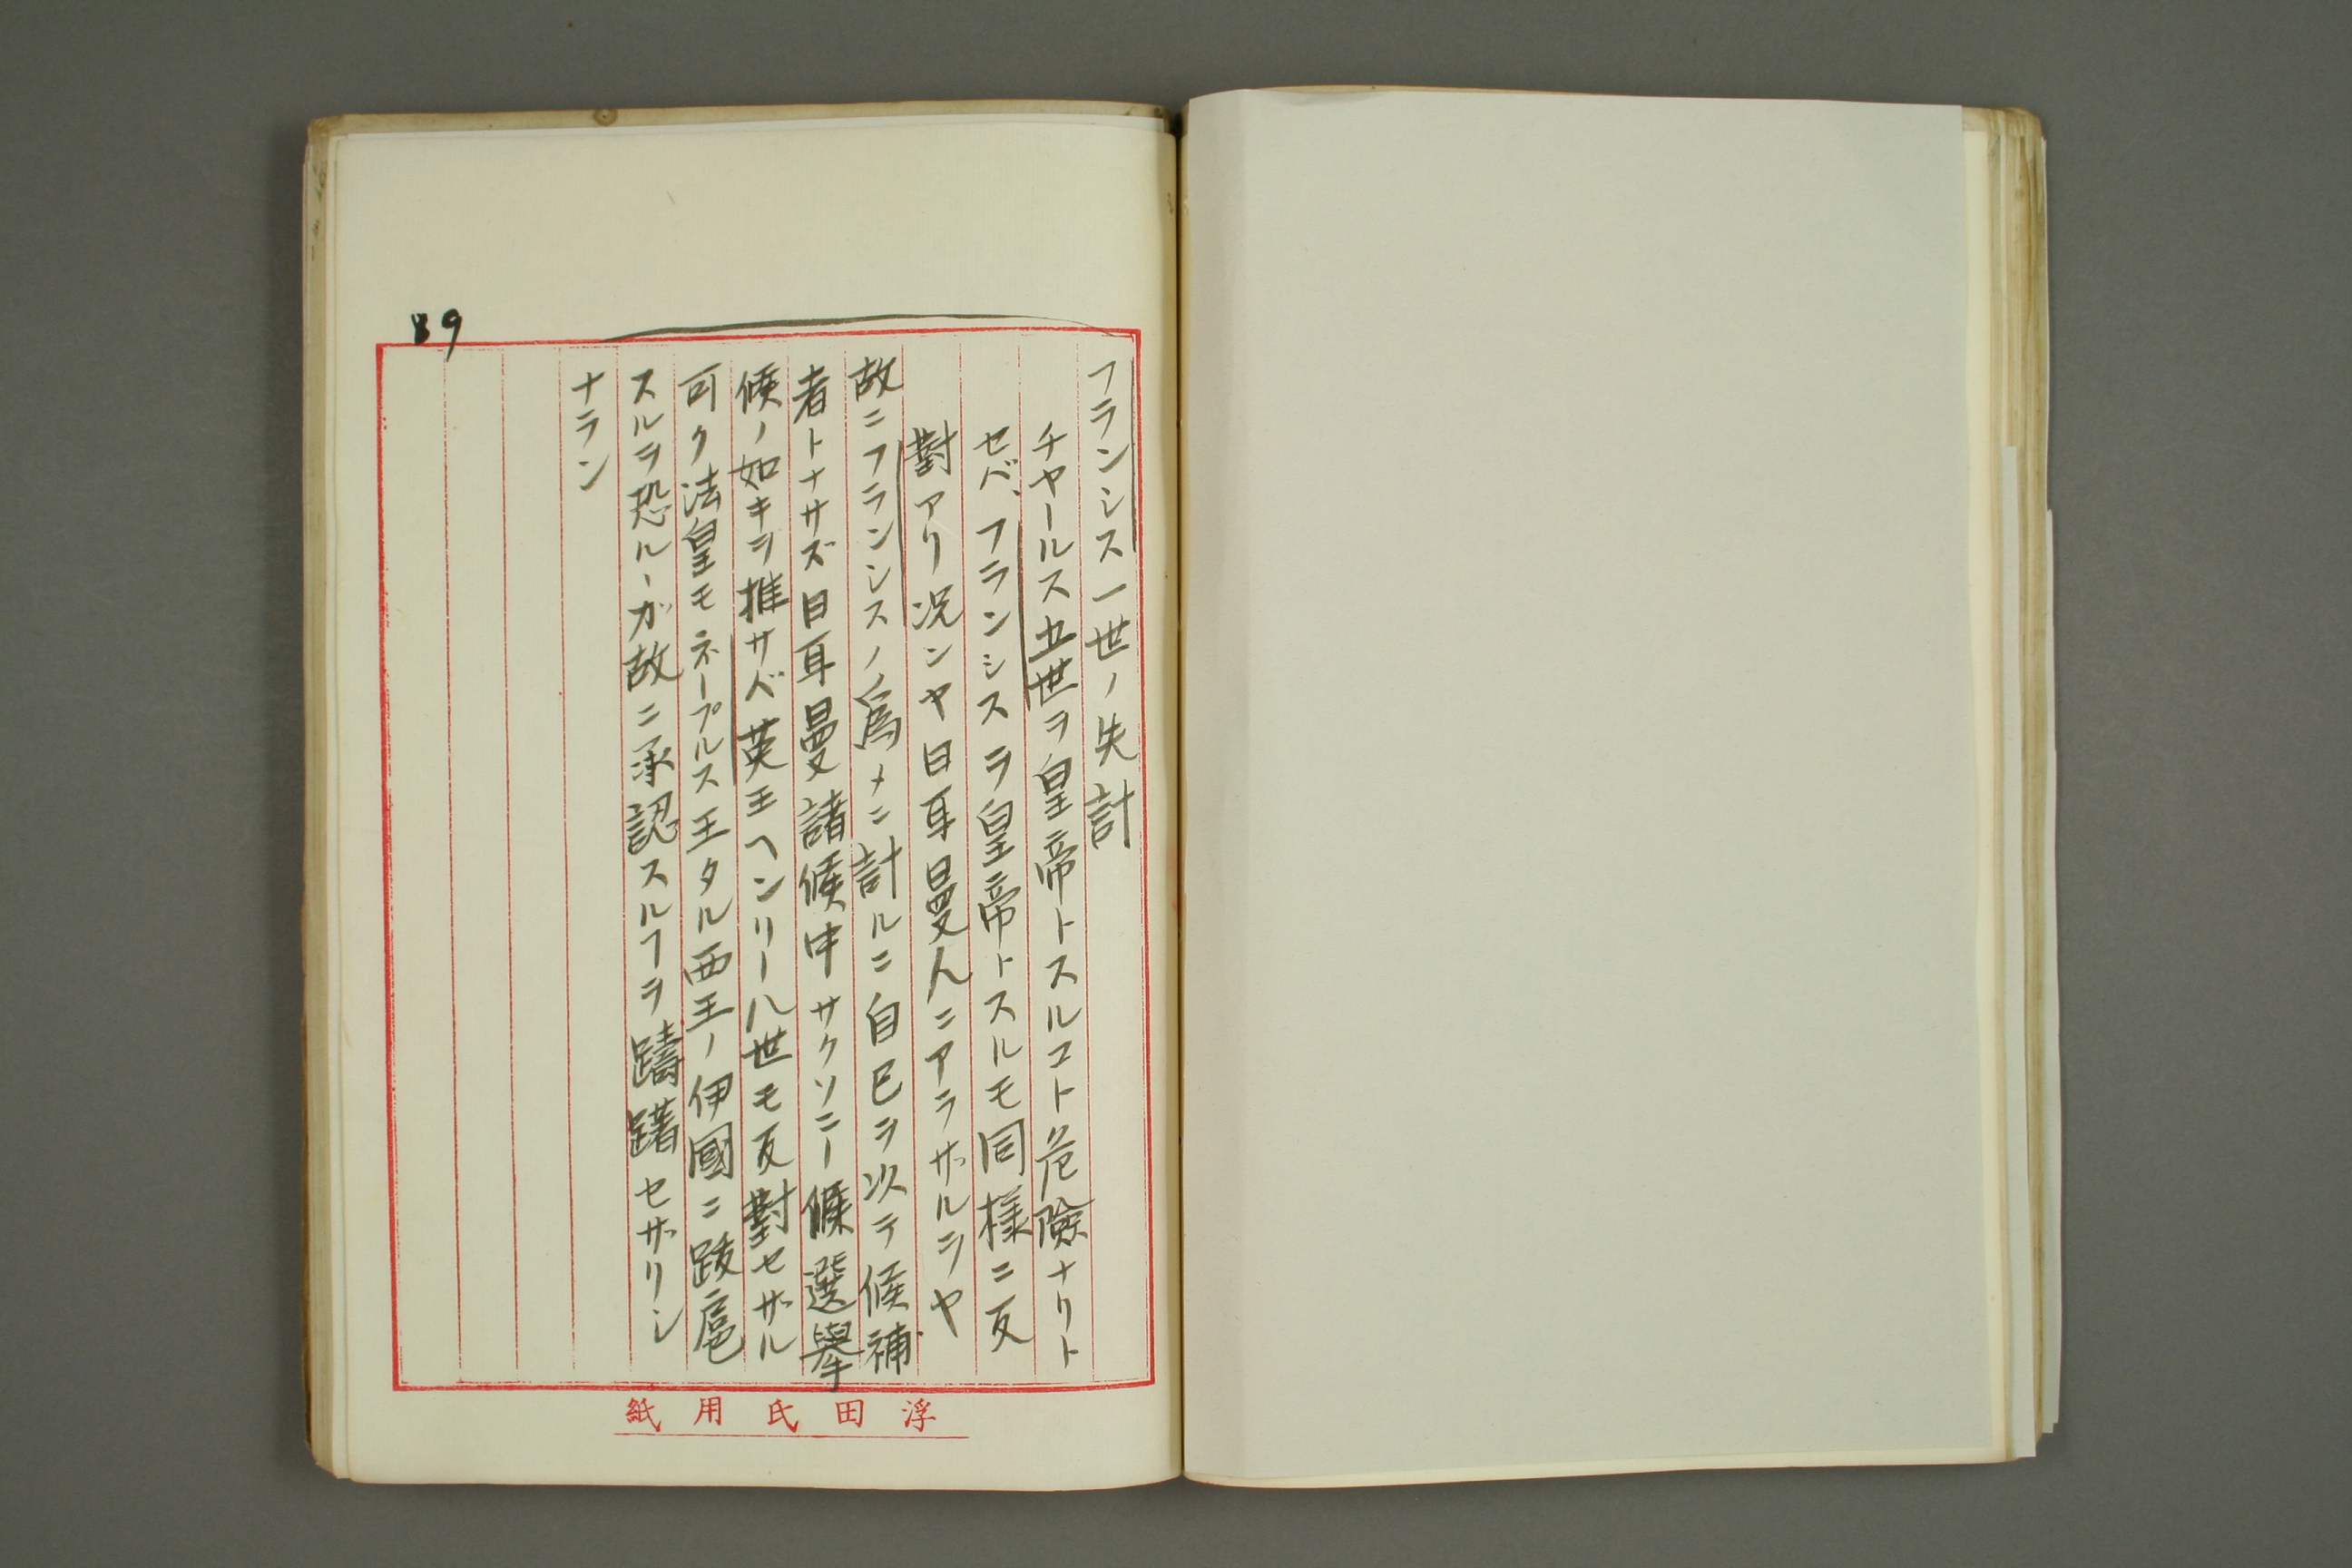 89
フランシス一世ノ失計
チヤールス五世ヲ皇帝トスルコト危險ナリト
セバ、フランシスヲ皇帝トスルモ同様ニ反
對アリ況ンヤ日耳曼人ニアラザルヲヤ
故ニフランシスノ爲メニ計ルニ自己ヲ次テ候補
者トナサズ日耳曼諸候中サクソニー候選擧
候ノ如キヲ推サバ英王ヘンリー八世モ反對セザル
可ク法皇モネープルス王タル西王ノ伊國ニ跋扈
スルヲ恐ルヽガ故ニ承認スルヿヲ躊躇セザリシ
ナラン
浮田氏用紙